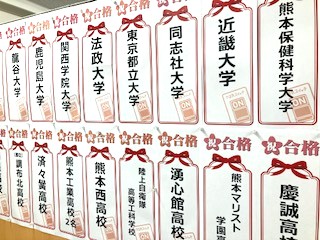 祝合格
熊本保健科学大学
祝合格
近畿大学
祝合格
同志社大学
祝合格
東京都立大学
祝合格
法政大学
祝合格
関西学院大学
祝合格
鹿児島大学
合格
龍谷大学
祝合格
慶誠高校
祝合格
熊本マリスト
学園高
祝合格
湧心館高校
祝合格
陸上自衛隊
高等工科学校
祝合格
熊本西高校
祝合格
熊本工業高校
2名
祝合格
済々黌高校
祝合格
調布北高校
ON